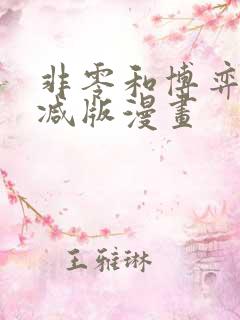 非零和博弈
减版漫畫
王雅琳